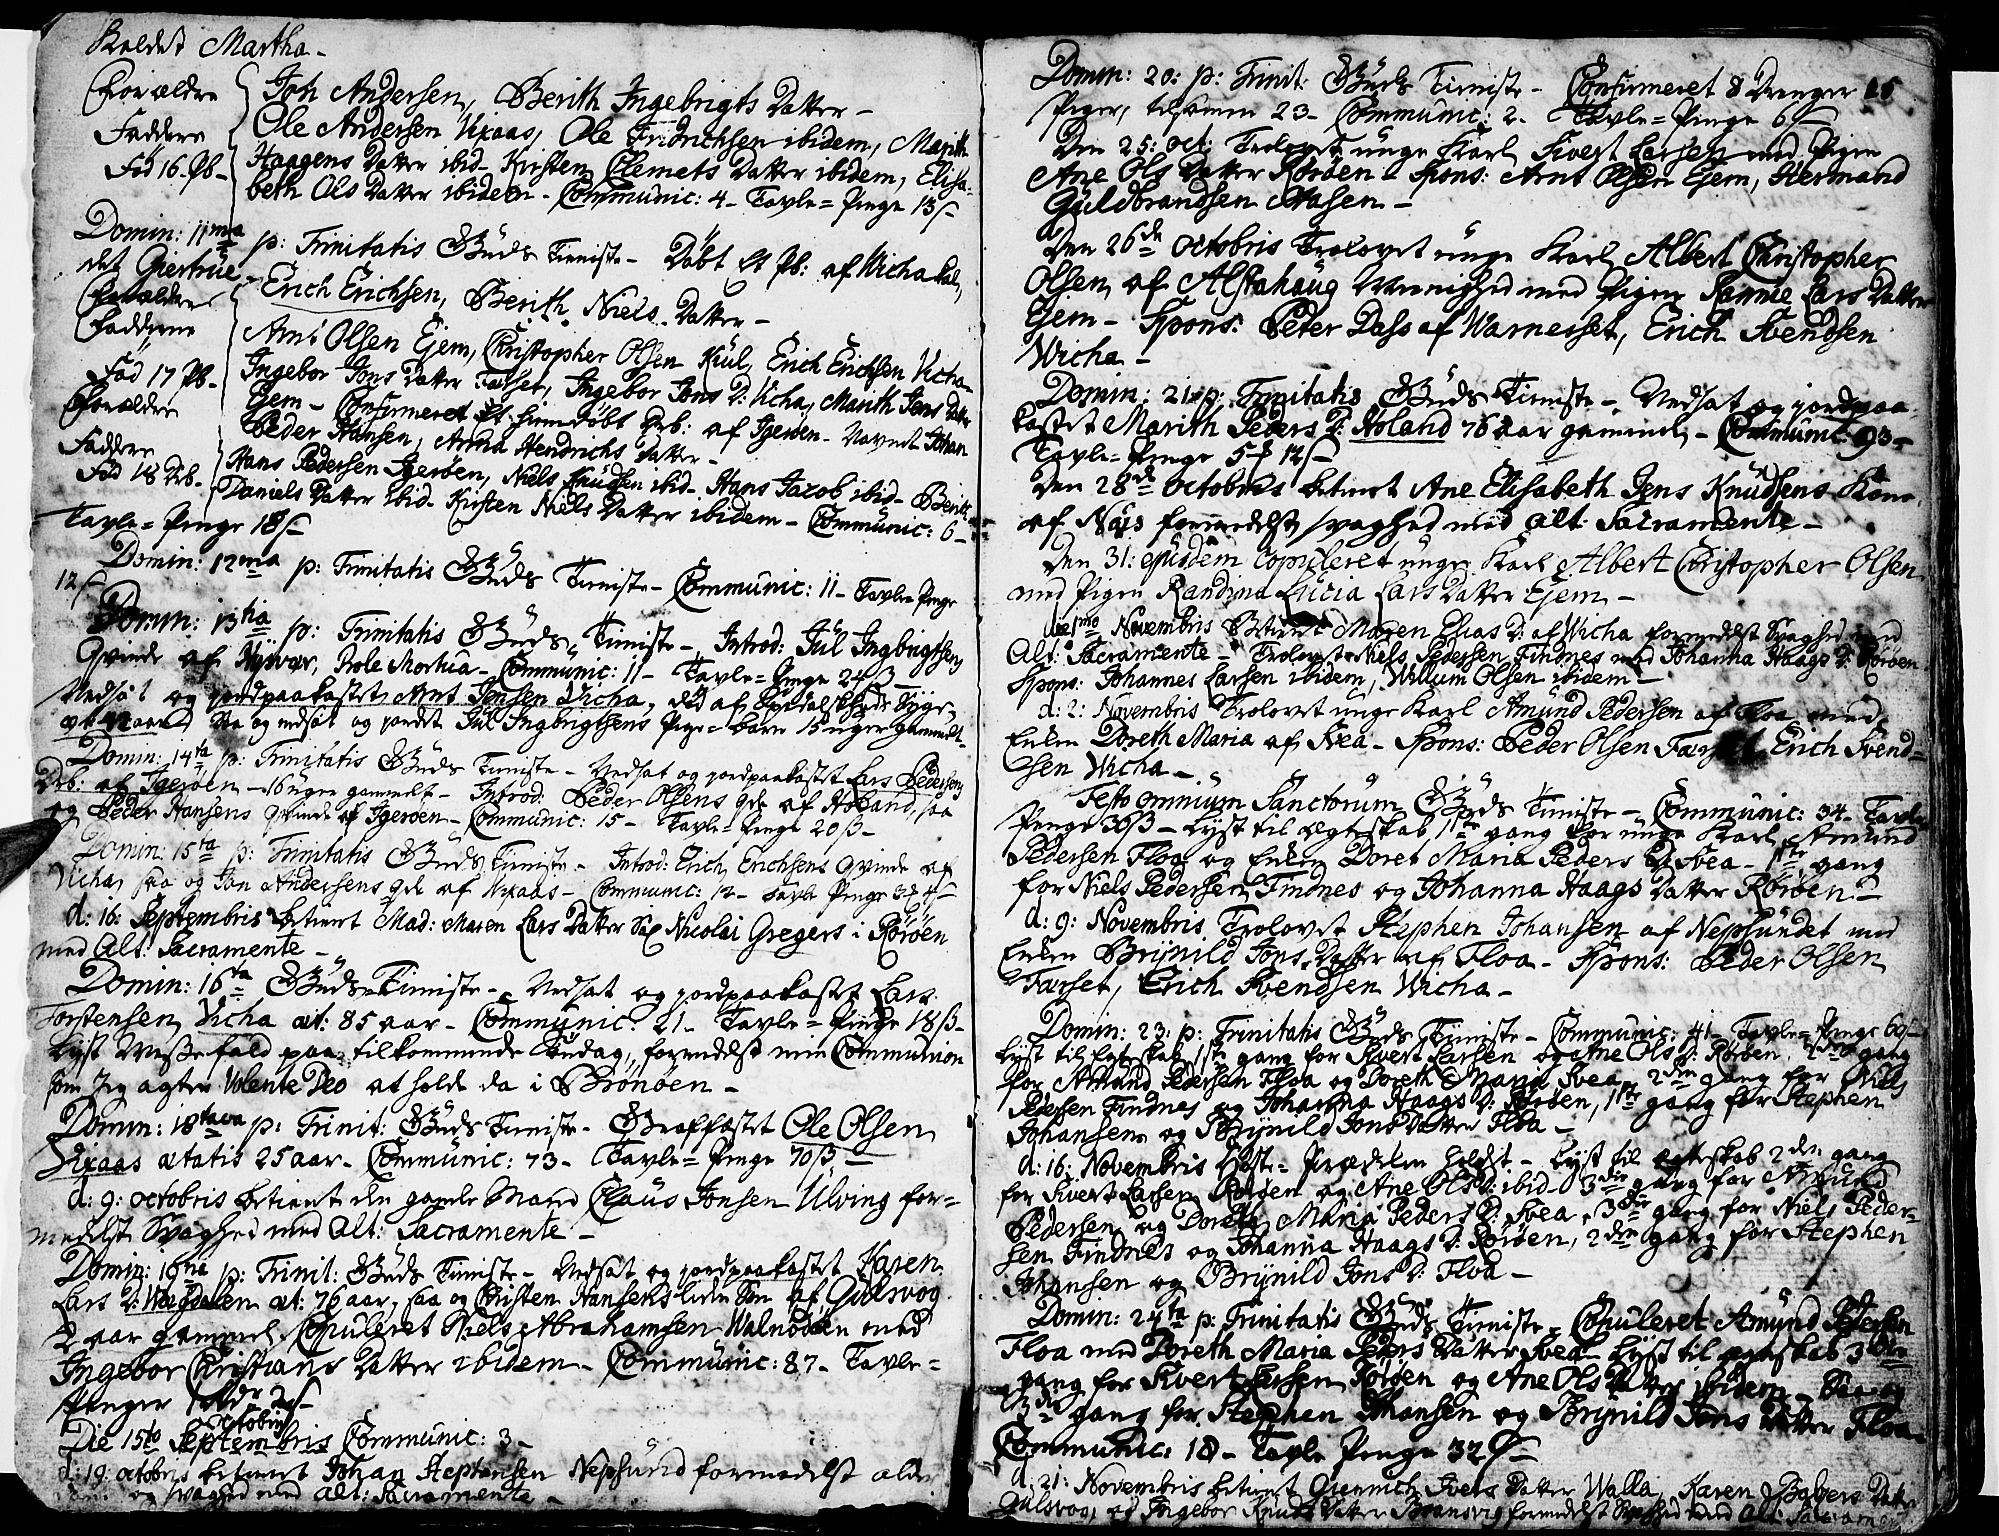 kaldet Martha -
Forældre Joh Andersen, Berith Ingebrigts Datter -
Faddere Ole Andersen Vixaas, Ole Fridrichsen ibidem, Marith
Fød 16 Pb - Haagens Datter ibid - Kirsten Clemets Datter ibidem, Elisa-
beth Ols Datter ibidem - Communic: 4 - Tavle= Penge 13 ß
Domin: 11ma p: Trinitatis Guds Tieniste - Døbt Et Pb: af Wicha kal,
det Giertrue
Forældre Erich Erichsen, Berith Niels Datter -
Fadderne Arnt Olsen Ejem, Christopher Olsen Kiul, Erich Erichsen Vicha
Ingebor Jons Datter Færset, Ingebor Jons D: Vicha, Marith Jens Datter
Fød 17 Pb - Ejem - Confirmeret Et hiemdøbt Drb: af Igerøen - Navnet Johan
Forældre Peder Hansen, Anna Hendrichs Datter -
Faddere Hans Pedersen Igerøen, Niels Knudsen ibid - Hans Jacob ibid - Berith
Fød 18 Drb - Daniels Datter ibid - Kirsten Niels Datter ibidem - Communic: 6 -
Tavle= Penge 18 ß
Domin: 12ma p: Trinitatis Guds Tieniste - Communic: 11 - Tavle= Penge
12 ß
Domin: 13tia p: Trinitatis Guds Tieniste - Introd: Jul Ingbrigtsens
Qvinde af Prole Mortua - Communic: 11 - Tavle= Penge 24 ß
Nedsat og jordpaakastet Arnt Jensen Vicha, død af Spidalskheds Syge,
saa og nedsat og jordet Jul Ingbrigtsens Pige= barn 15 uger gammelt -
Domin: 14ta p: Trinitatis Guds Tieniste - Nedsat og jordpaakastet Lars Pedersens
Drb: af Igerøen - 16 uger gammelt - Introd: Peder Olsens Qde af Høland, saa
og Peder Hansens Qvinde af Igerøen - Communic: 15 - Tavle= Penge 20 ß -
Domin: 15ta p: Trinitatis Guds Tieniste - Introd: Erich Erichsens Qvinde af
Vicha, saa og Jon Andersens Qde af Vixaas - Communic: 12 - Tavle Penge
d: 16: Septembris betient Mad: Maren Lars Datter Nicolai Gregers i Rørøen
med Alt: Sacramente -
Domin: 16ta Guds Tieniste - Nedsat og jordpaakastet Lars
Torstensen Vicha æt: 85 aar - Communic: 21 - Tavle= Penge 18 ß -
Lyst Messefald paa tilkommende Søndag, formedelst min Communion
som Jeg agter Volente Deo at holde da i Brønøen -
Domin: 18tava p: Trinit: Guds Tieniste - Graffæstet Ole Olsen
Vixaas ætatis 25 aar - Communic: 73 - Tavle= Penge 70 ß -
d: 9: octobris betient den gamle Mand Claus Jonsen Ulving for=
medelst Svaghed med Alt: Sacramente -
Domin: 19na p: Trinit: Guds Tieniste - Nedsat og jordpaakastet Karen
Lars D: Wægdalen æt: 76 aar, saa og Christen Hansens liden Søn af Gulsvog
2 aar gammel - Copuleret Niels Abrahamsen Walnødsen med
Ingebor Christians Datter ibidem - Communic: 87 - Tavle=
Penger 1 Rdr 2 ß
octobris
Die 15to Septembris Communic: 3 -
d: 19: octobris betient Johan Stephansen Nepsund formedelst alder-
dom og svaghed med Alt: Sacramente -
Domin: 20: p: Trinit: Guds Tieniste - Confirmeret 8 Drenger 15
Piger, tilsamen 23 - Communic: 2 - Tavle= Penge 6 ß
Den 25: oct: Trolovet unge Karl Sivert Larsen med Pigen
Ane Ols Datter Rørøen - Spons: Arnt Olsen Ejem, Hermand
Guldbrandsen Aasen -
Den 26de octobris Trolovet unge Karl Albert Christopher
Olsen af Alstahaug Menighed med Pigen Sannie Lars Datter
Ejem - Spons: Peter Dass af Warneset, Erich Svendsen
Wicha -
Domin: 21: p: Trinitatis Guds Tieniste - Nedsat og jordpaa-
kastet Marith Peders D: Høland 76 aar gammel - Communic: 93 -
Tavle= Penge 5 12 ß
Den 28de octobris betient Ane Elisabeth Jens Knudsens Kone
af Næs formedelst svaghed med Alt: Sacramente -
Den 31: ejusdem Copuleret unge Karl Albert Christopher Olsen
med Pigen Randina Lucia Lars Datter Ejem -
die 1mo Novembris Betient Maren Elias D: af Vicha formedelst Svaghed med
Alt: Sacramente - Trolovet Niels Pedersen Findnes med Johanna Haags D: Rørøen
Spons: Johannes Larsen ibidem, Willum Olsen ibidem -
d: 2: Novembris Trolovet unge Karl Amund Pedersen af Floa med
Enken Doreth Maria af Svea - Spons: Peder Olsen Færset, Erich Svend-
sen Wicha -
Festo omnium Sanctorum Guds Tieniste - Communic: 34 - Tavle
Penge 36 ß - Lyst til Egteskab 1ste gang for unge Karl Amund
Pedersen Floa og Enken Doret Maria Peders D Svea - 1ste gang
for Niels Pedersen Findnes og Johanna Haags Datter Rørøen -
d: 9: Novembris Trolovet Stephen Johansen af Nepsundet med
Enken Brynild Jons Datter af Floa - Spons: Peder Olsen
Færset, Erich Svendsen Wicha -
Domin: 23: p: Trinitatis Guds Tieniste - Communic: 41 - Tavle= Penge 60 ß
Lyst til Egteskab 1ste gang for Sivert Larsen og Ane Ols D: Rørøen, 2den gang
for Amund Pedersen Floa og Doreth Maria Svea, 2den gang for Niels
Pedersen Findnes og Johanna Haags D: Rørøen, 1ste gang for Stephen
Johansen og Brynild Jons Datter Floa -
d: 16: Novembris Høste= Prædiken holdet - Lyst til Egteskab 2den gang
for Sivert Larsen Rørøen og Ane Ols D: ibid - 3die gang for Amund
Pedersen og Doreth Maria Peders D: Svea, 3die gang for Niels Peder-
sen Findnes og Johanna Haags D: Rørøen, 2den gang for Stephen
Johansen og Brynild Jons D: Floa -
Domin: 24ta p: Trinitatis Guds Tieniste - Copuleret Amund Pedersen
Floa med Doreth Maria Peders Datter Svea - Lyst til Egteskab 3die
gang for Sivert Larsen Rørøen og Ane Ols Datter ibidem - Saa og
3die gang for Stephen Johansen og Brynild Jons Datter Floa -
Communic: 18 - Tavle Penge 32 ß -
d: 21: Novembris betient Giermich Ivers Datter Walla, Karen Datter
Gulsvog, og Ingebor Knuds Datter Brønsvig formedelst Svaghed med Alt: Sacrament